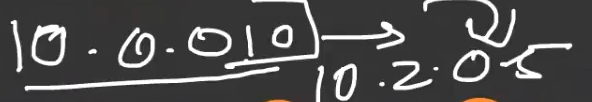 10.0.010 → 2)
10.2.05